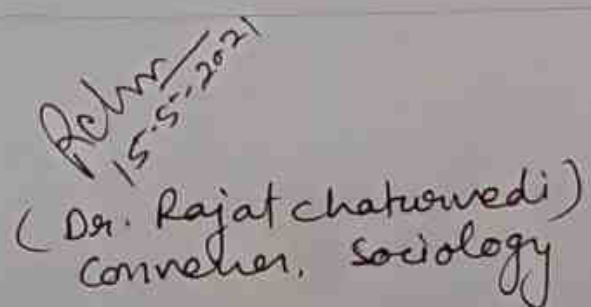 15.5.2021
(Dr. Rajat chaturvedi)
Convener, sociology